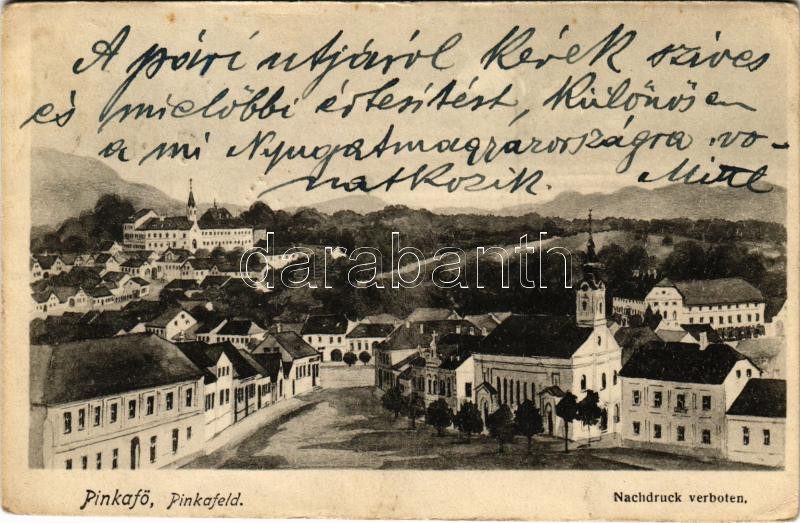 A pári utjáról kérek szives
és mielőbbi értesítést, különösen
a mi Nyugatmagyarországra vo-
natkozik. Mittl
darabanth
Pinkafö, Pinkafeld.
Nachdruck verboten.